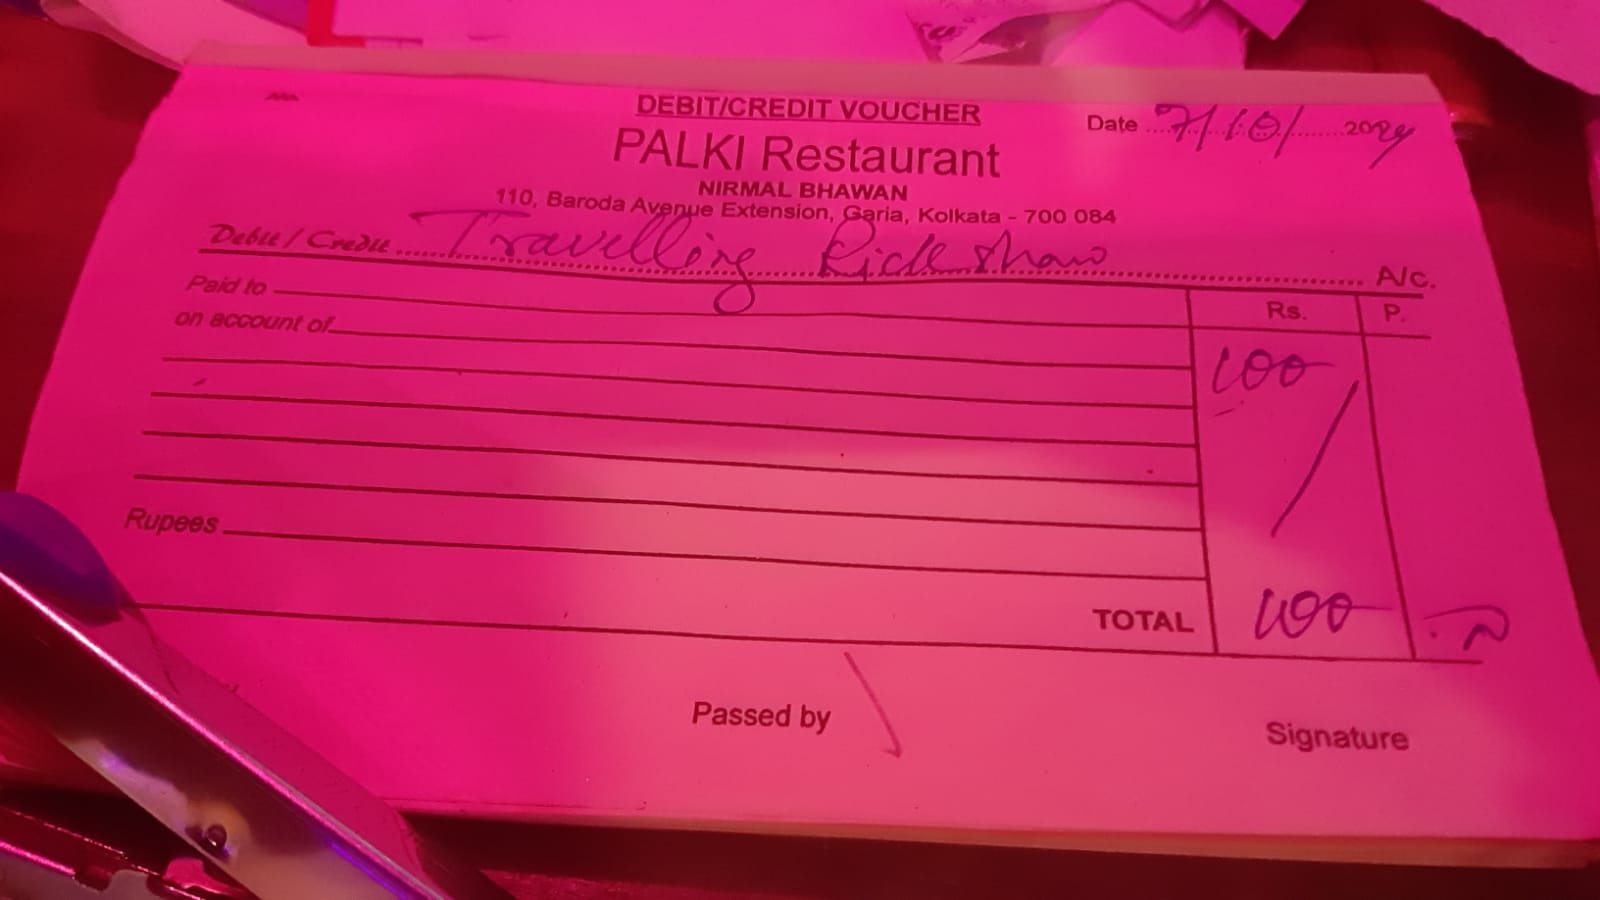 DEBIT/CREDIT VOUCHER
Date 7/10/ 2024
PALKI Restaurant
NIRMAL BHAWAN
110, Baroda Avenue Extension, Garia, Kolkata - 700 084
Debit / Credit Travelling Rickshaw A/c.
Paid to Rs. P.
on account of 100
Rupees
TOTAL 100
Passed by Signature